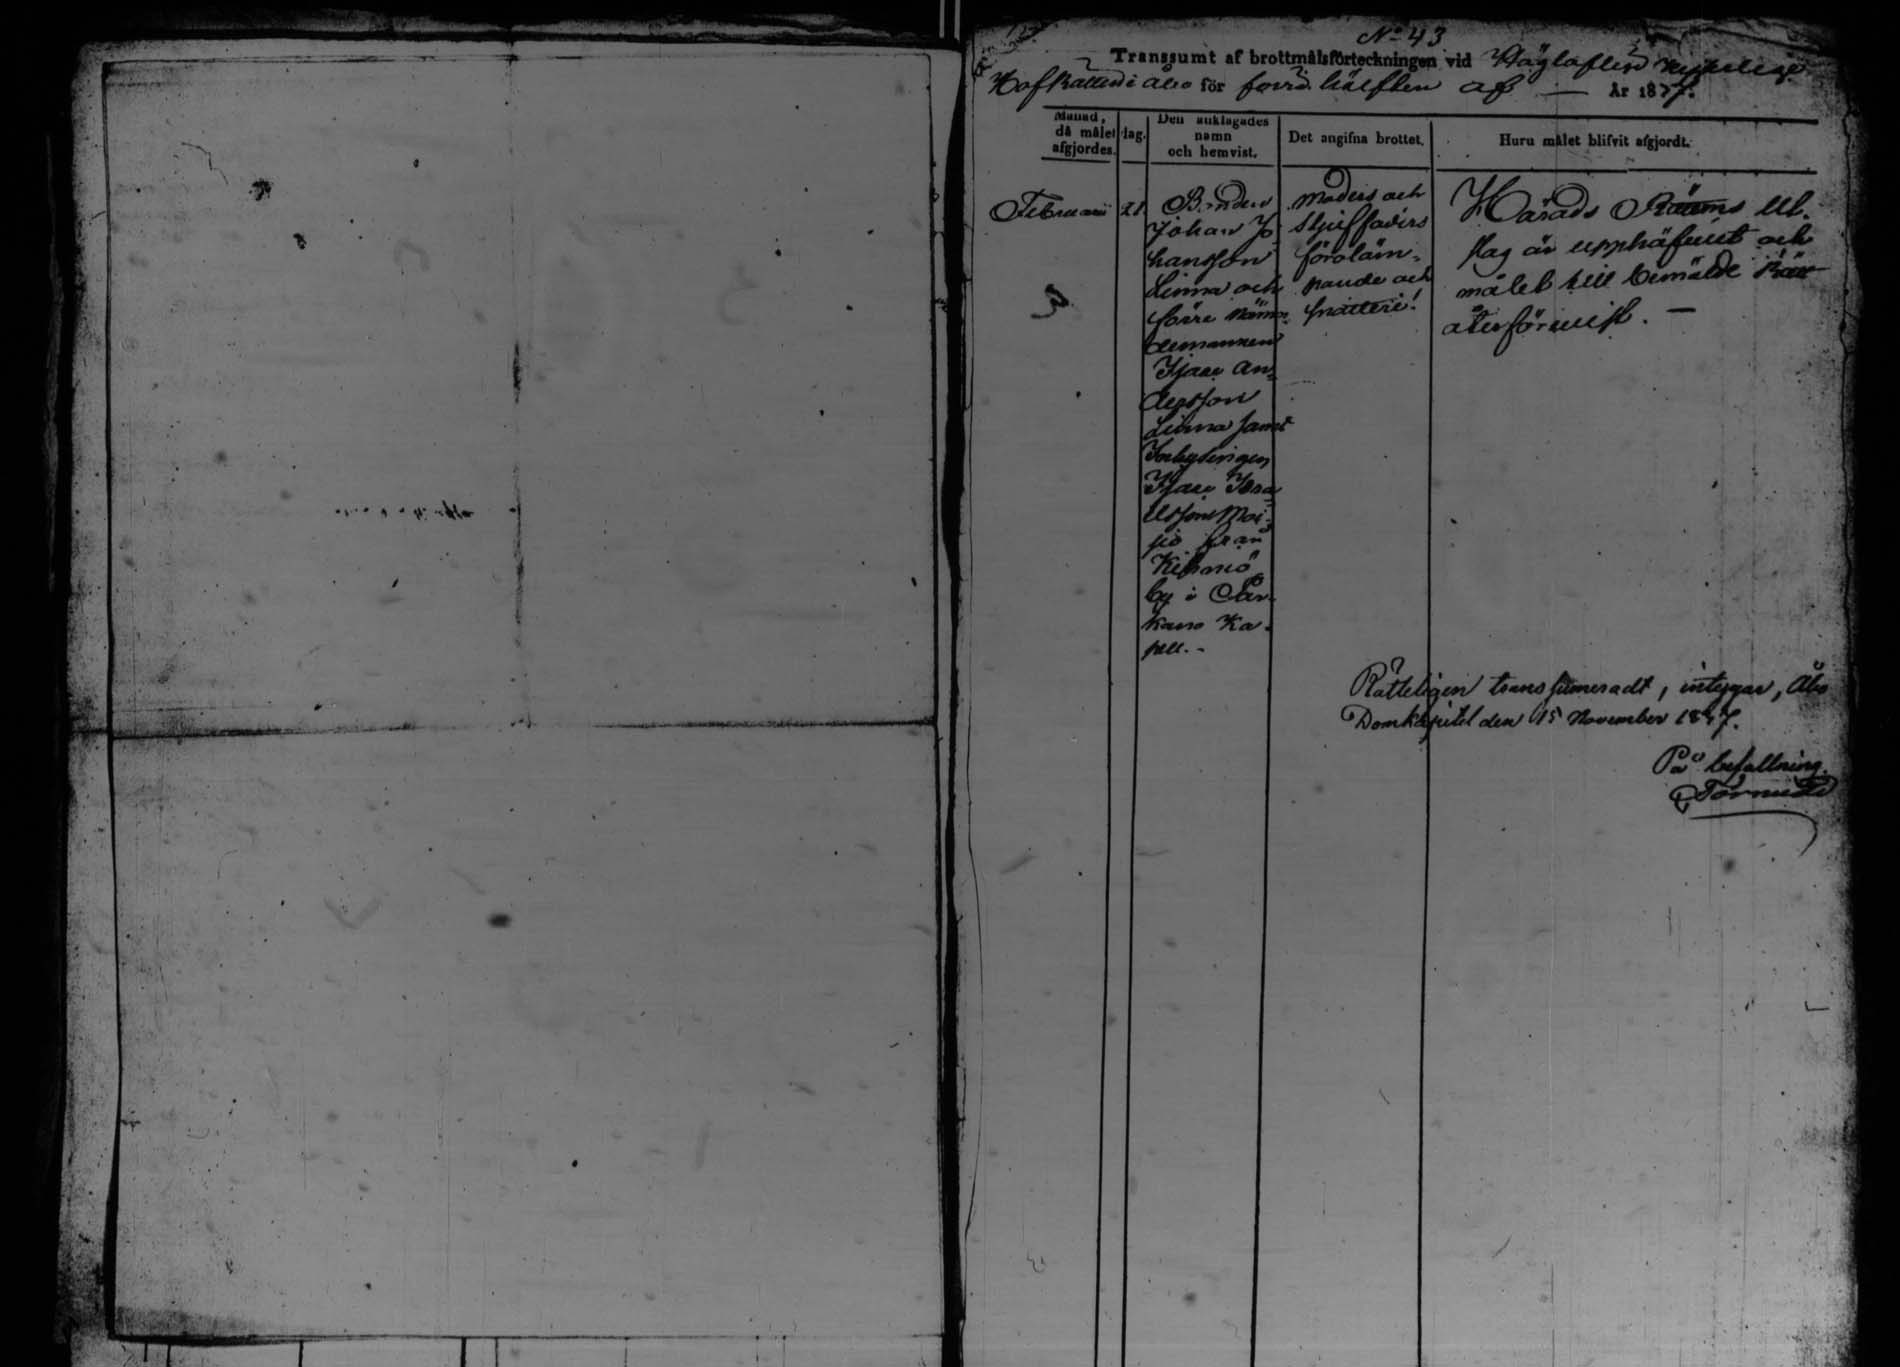 No 43
Transsumt af brottmålsförteckningen vid Höglofliga Kejserliga
HofRätten i Åbo för förra hälften af — År 1857.
Månad, då målet afgjordes.
dag.
Den anklagades namn och hemvist.
Det angifna brottet.
Huru målet blifvit afgjordt.
Februarii
21.
Bonden
Johan Jo-
hansson
Linna och
förre Näm-
demannen
Isaac An-
dersson
Linna samt
Inhysingen
Isaac Isra-
elsson Moi-
sio från
Kihniö
by i Par-
kano Ka-
pell.-
Moders och
stjuffaders
föroläm-
pande och
snatteri.
Härads Rättens Ut-
slag är upphäfvet och
målet till bemälde Rätt
återförvist. —
Rätteligen transsumeradt, intygar, Åbo
Domkapitel den 15 November 1857.
På befallning.